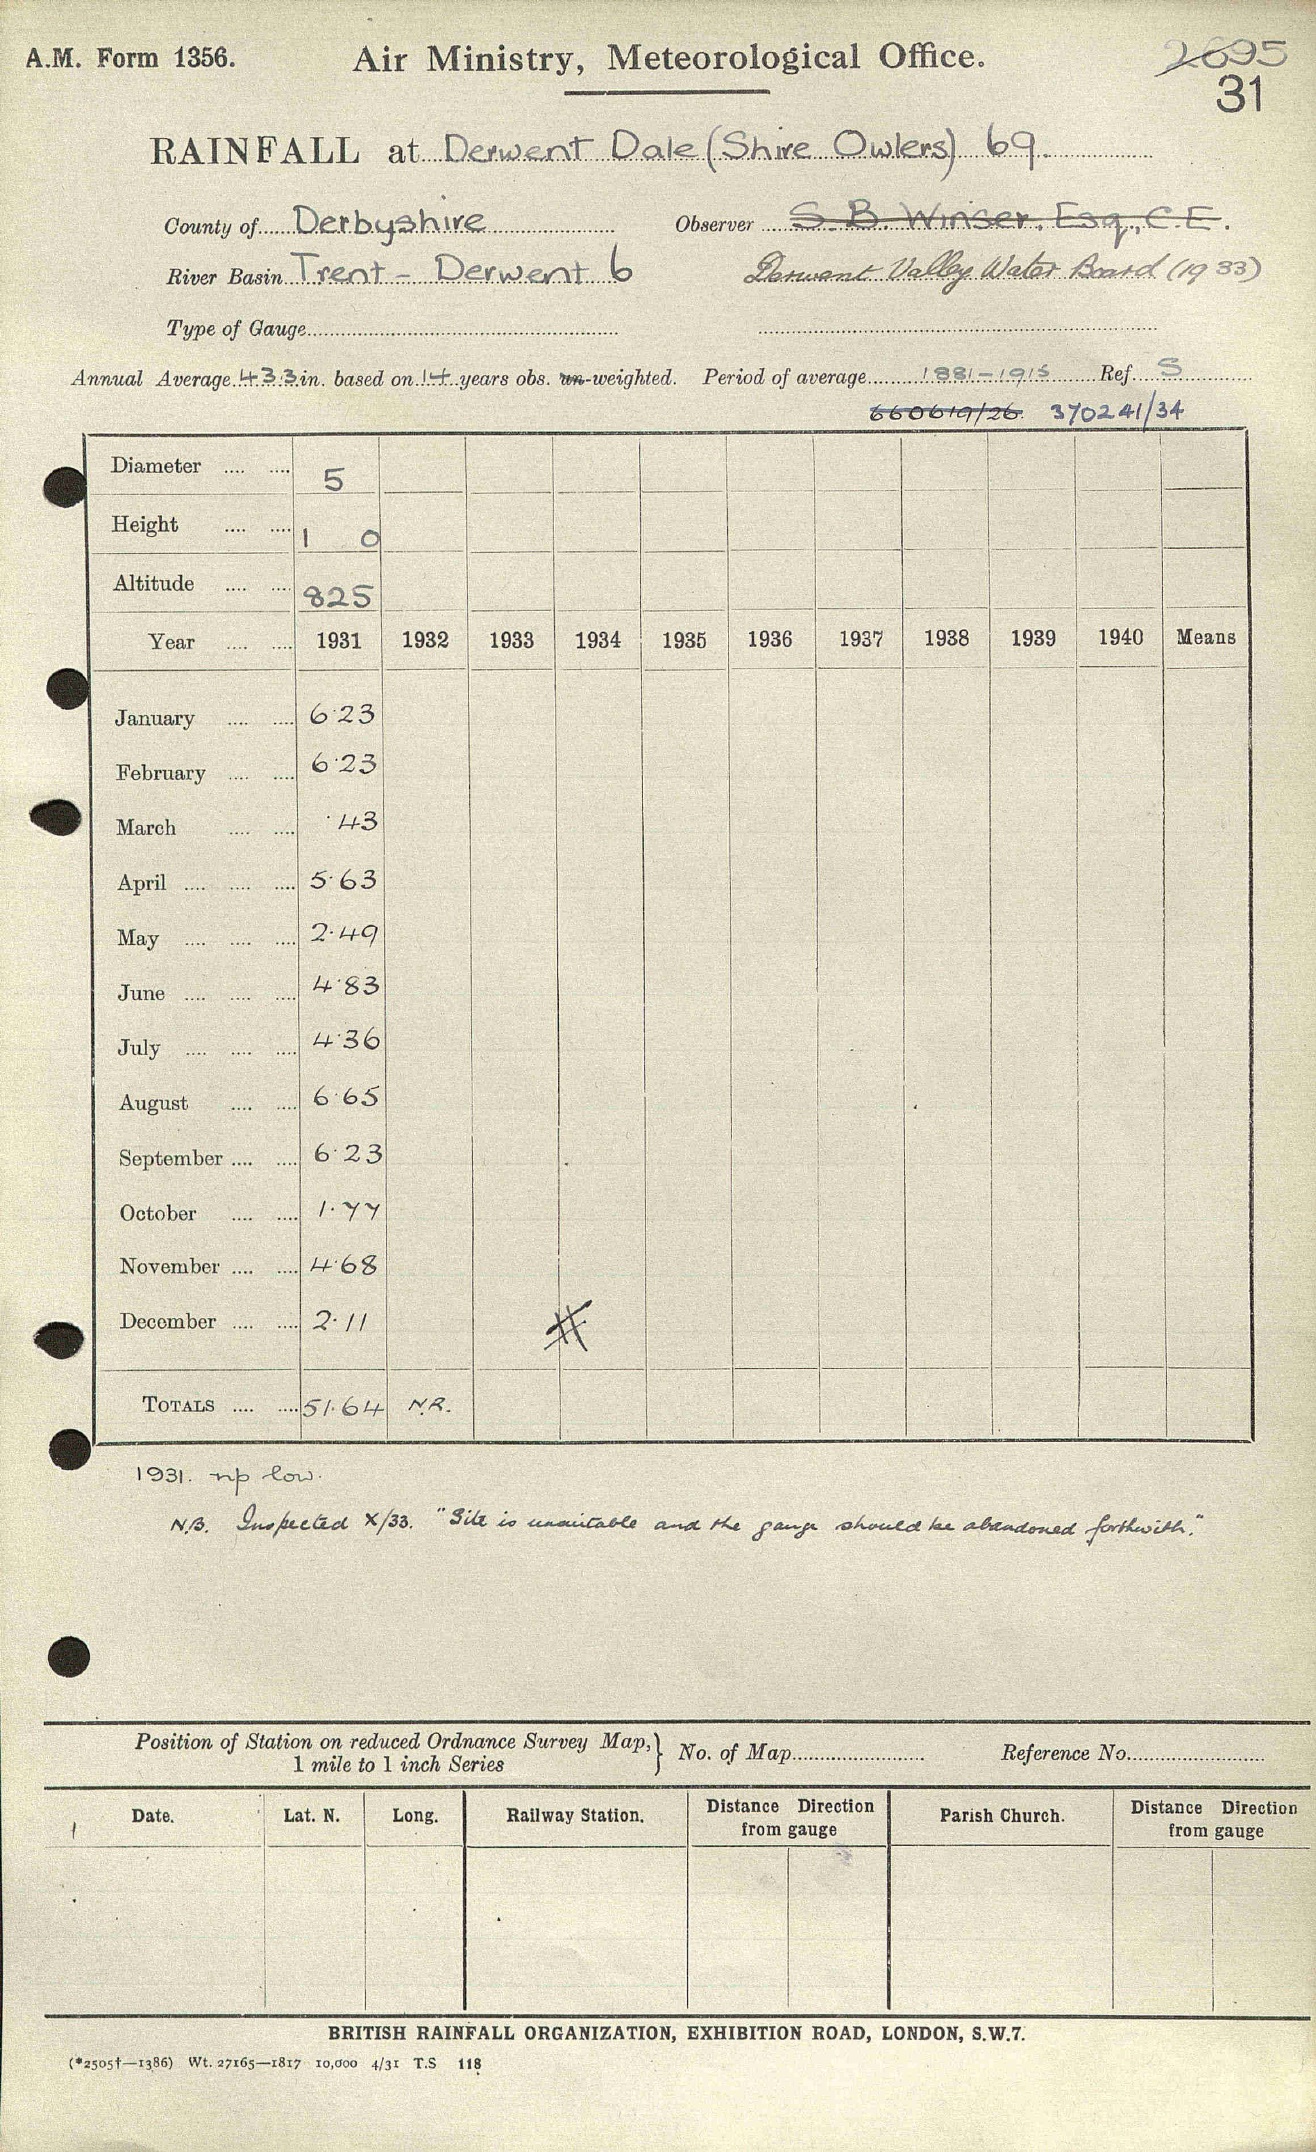 A.M. Form 1356.
Air Ministry, Meteorological Office.
2695
31
RAINFALL at Derwent Dale (Shire Owlers) 69.
County of Derbyshire
Observer S. B. Winser, Esq., C.E.
River Basin Trent - Derwent 6
Derwent Valley Water Board (1933)
Type of Gauge
Annual Average 43.3 in. based on 14 years obs. un-weighted. Period of average 1881-1915 Ref. S
660619/26. 370241/34
Diameter 5
Height 1 0
Altitude 825
Year 1931 1932 1933 1934 1935 1936 1937 1938 1939 1940 Means
January 6.23
February 6.23
March .43
April 5.63
May 2.49
June 4.83
July 4.36
August 6.65
September 6.23
October 1.77
November 4.68
December 2.11 #
TOTALS 51.64 N.R.
1931. np low.
N.B. Inspected X/33. "Site is unsuitable and the gauge should be abandoned forthwith."
Position of Station on reduced Ordnance Survey Map,
1 mile to 1 inch Series } No. of Map Reference No.
Date. Lat. N. Long. Railway Station. Distance Direction from gauge Parish Church. Distance Direction from gauge
BRITISH RAINFALL ORGANIZATION, EXHIBITION ROAD, LONDON, S.W.7.
(*2505†—1386) Wt. 27165—1817 10,000 4/31 T.S 118